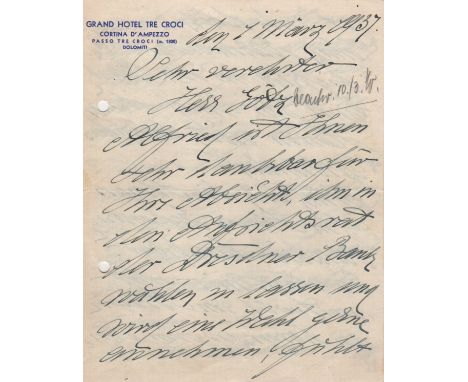 GRAND HOTEL TRE CROCI
CORTINA D'AMPEZZO
PASSO TRE CROCI (m. 1808)
DOLOMITI
den 1 März 1937.
Sehr verehrter
Herr Götz
10./3.
Alfried ist Ihnen
sehr dankbar für
Ihre Absicht, ihn in
den Aufsichtsrat
der Dresdner Bank
wählen zu lassen und
wird eine Wahl gerne
annehmen, fühlt